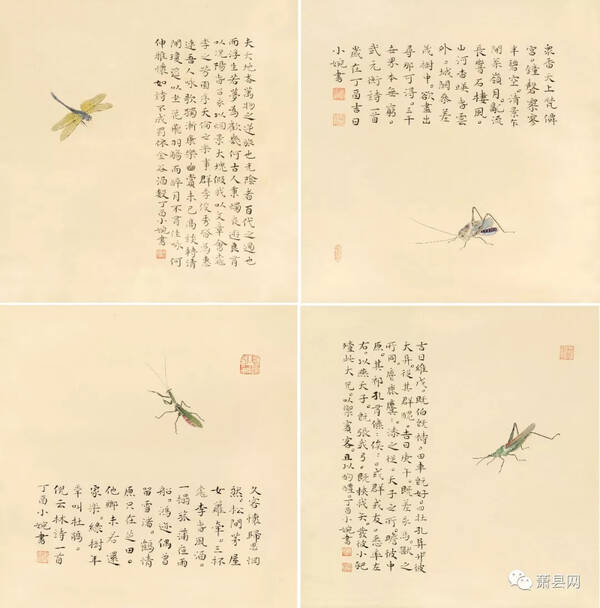 夫天地者萬物之逆旅也光陰者百代之過也
而浮生若夢為歡幾何古人秉燭夜遊良有
以況陽春召我以烟景大塊假我以文章會桃
李之芳園序天倫之樂事群季俊秀皆為惠
連吾人咏歌獨慚康樂幽賞未已高談轉清
開瓊筵以坐花飛羽觴而醉月不有佳咏何
伸雅懷如詩不成罰依金谷酒數丁酉小婉書
衆香天上梵僊
宮。鐘磬寥寥
半碧空。清景乍
開松嶺月。亂流
長響石樓風。
山河杳暎春雲
外。城闕參差
茂樹中。欲盡出
尋那可得。三千
世界本無窮。
武元衡詩一首
歲在丁酉吉日
小婉書
久客懷歸思惘
然。松間茅屋
女蘿牽。三杯
桃李春風酒。
一榻菰蒲夜雨
船。鴻迹偶曾
留雪渚。鶴情
原只在芝田。
他鄉未若還
家樂。綠樹年
年叫杜鵑。
倪雲林詩一首
丁酉小婉書
吉日維戊。既伯既禱。田車既好。四牡孔阜。升彼
大阜。從其群醜。吉日庚午。既差我馬。獸之
所同。麀鹿麌麌。漆沮之從。天子之所。瞻彼中
原。其祁孔有。儦儦俟俟。或群或友。悉率左
右。以燕天子。既張我弓。既挾我矢。發彼小豝
殪此大兕。以御賓客。且以酌醴。丁酉小婉書
萧县网